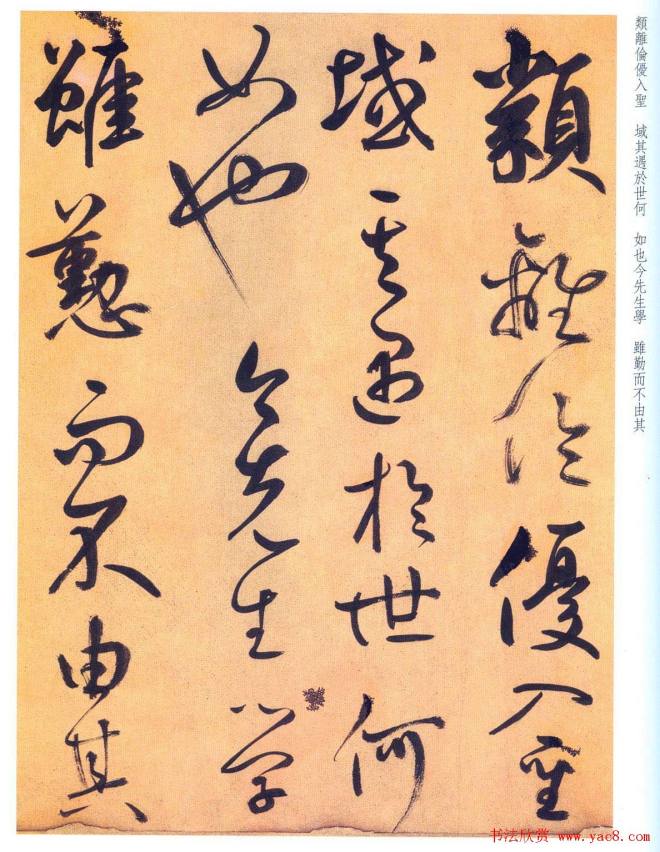 類離倫優入聖
域其遇於世何
如也今先生學
雖勤而不由其
類離倫優入聖　域其遇於世何　如也今先生學　雖勤而不由其
书法欣赏 www.yac8.com